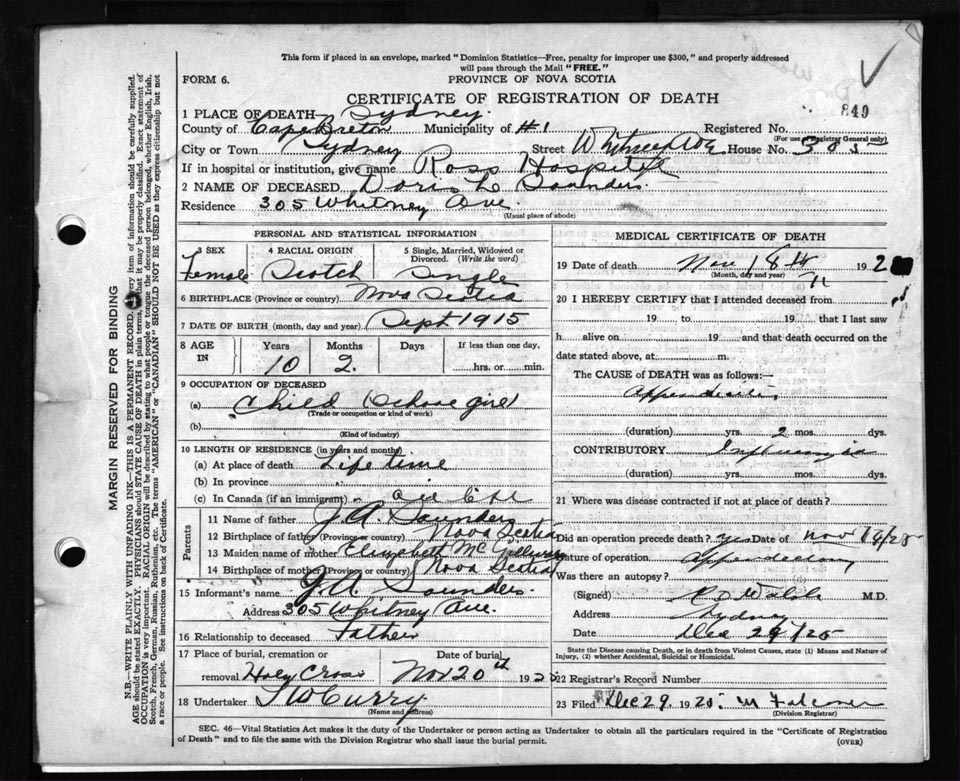 This form if placed in an envelope, marked "Dominion Statistics—Free, penalty for improper use $300," and properly addressed
will pass through the Mail "FREE."
FORM 6.
PROVINCE OF NOVA SCOTIA
CERTIFICATE OF REGISTRATION OF DEATH
849
1 PLACE OF DEATH— Sydney.
County of Cape Breton Municipality of #1 Registered No.
(For use of Registrar General only)
City or Town Sydney Street Whitney Ave House No.
If in hospital or institution, give name Ross Hospital
2 NAME OF DECEASED Doris L Saunders.
Residence 305 Whitney Ave.
(Usual place of abode)
PERSONAL AND STATISTICAL INFORMATION
3 SEX 4 RACIAL ORIGIN 5 Single, Married, Widowed or Divorced. (Write the word)
Female Scotch Single
6 BIRTHPLACE (Province or country) Nova Scotia
7 DATE OF BIRTH (month, day and year) Sept 1915
8 AGE IN Years Months Days If less than one day,
10 2. hrs. or min.
9 OCCUPATION OF DECEASED
(a) Child School girl
(Trade or occupation or kind of work)
(b)
(Kind of industry)
10 LENGTH OF RESIDENCE (in years and months)
(a) At place of death Life time
(b) In province
(c) In Canada (if an immigrant)
Parents
11 Name of father J A Saunders
12 Birthplace of father (Province or country) Nova Scotia
13 Maiden name of mother Elizabeth
14 Birthplace of mother (Province or country) Nova Scotia
15 Informant's name J. A. Saunders.
Address 305 Whitney Ave.
16 Relationship to deceased Father
17 Place of burial, cremation or Date of burial
removal Holy Cross Nov 20th 192
18 Undertaker Curry
(Name and address)
MEDICAL CERTIFICATE OF DEATH
19 Date of death Nov 18th 192
(Month, day and year)
20 I HEREBY CERTIFY that I attended deceased from
19 to 19 that I last saw
h alive on 19 and that death occurred on the
date stated above, at m.
The CAUSE of DEATH was as follows:—
Appendicitis,
(duration) yrs. 2 mos. dys.
CONTRIBUTORY
(duration) yrs. mos. dys.
21 Where was disease contracted if not at place of death?
Did an operation precede death? yes Date of Nov
Nature of operation
Was there an autopsy?
(Signed) Walsh M.D.
Address Sydney
Date Dec 29/25
State the Disease causing Death, or in death from Violent Causes, state (1) Means and Nature of
Injury, (2) whether Accidental, Suicidal or Homicidal.
22 Registrar's Record Number
23 Filed Dec 29. 1925.
(Division Registrar)
SEC. 46—Vital Statistics Act makes it the duty of the Undertaker or person acting as Undertaker to obtain all the particulars required in the "Certificate of Registration
of Death" and to file the same with the Division Registrar who shall issue the burial permit.
(OVER)
MARGIN RESERVED FOR BINDING
N.B.—WRITE PLAINLY WITH UNFADING INK—THIS IS A PERMANENT RECORD. item of information should be carefully supplied.
AGE should be stated EXACTLY. PHYSICIANS should STATE CAUSE OF DEATH in plain terms, that it may be properly classified. Exact statement of
OCCUPATION is very important. RACIAL ORIGIN will be described by stating to what people or tongue the deceased person belonged, whether English, Irish,
Scotch, French, German, Russian, Ruthenian, etc. The terms "AMERICAN" or "CANADIAN" SHOULD NOT BE USED as they express citizenship but not
a race or people. See instructions on back of Certificate.